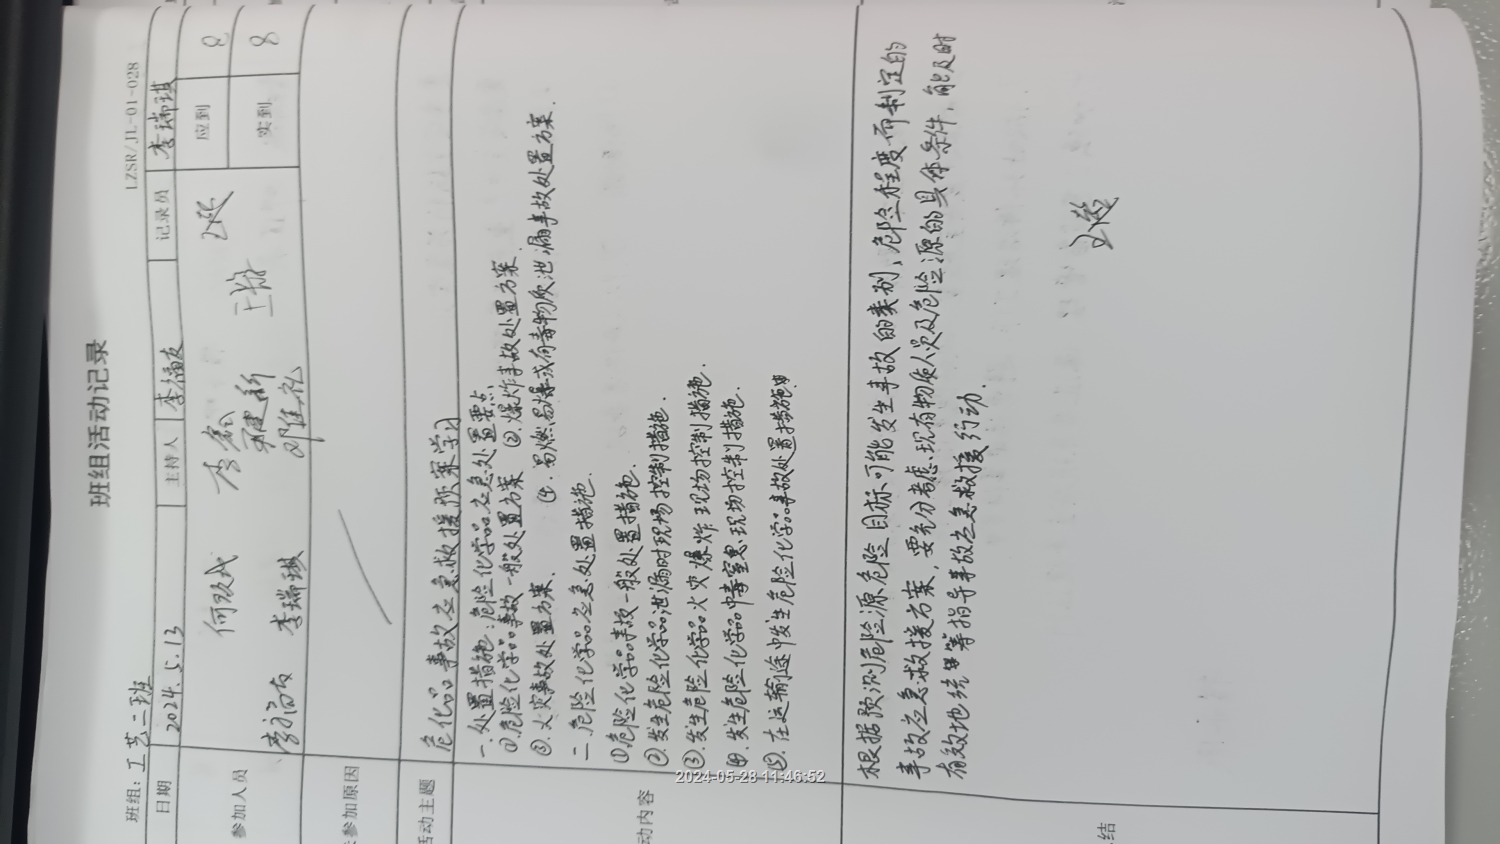 班组活动记录
LZSR/JL-01-028
班组：工艺二班
日期 2024.5.13 主持人 李福友 记录员 李瑞琪
参加人员 何政武 李鑫 应到 8
李福友 李瑞琪 邓维礼 上海 实到 8
参加原因
活动主题 危化品事故应急救援预案学习
动内容
一.处置措施:危险化学品应急处置要点,
①.危险化学品事故一般处置方案 ②.爆炸事故处置方案
③.火灾事故处置方案. ④.易燃、易爆或有毒物质泄漏事故处置方案.
二.危险化学品应急处置措施.
①危险化学品事故一般处置措施.
②.发生危险化学品泄漏时现场控制措施.
③.发生危险化学品火灾爆炸现场控制措施.
④.发生危险化学品中毒窒息现场控制措施.
⑤.在运输途中发生危险化学品事故处置措施
结
根据预测危险源、危险目标可能发生事故的类别、危险程度而制定的
事故应急救援方案,要充分考虑现有物质人员及危险源的具体条件,能及时
有效地统筹指导事故应急救援行动.
2024-05-28 11:46:52